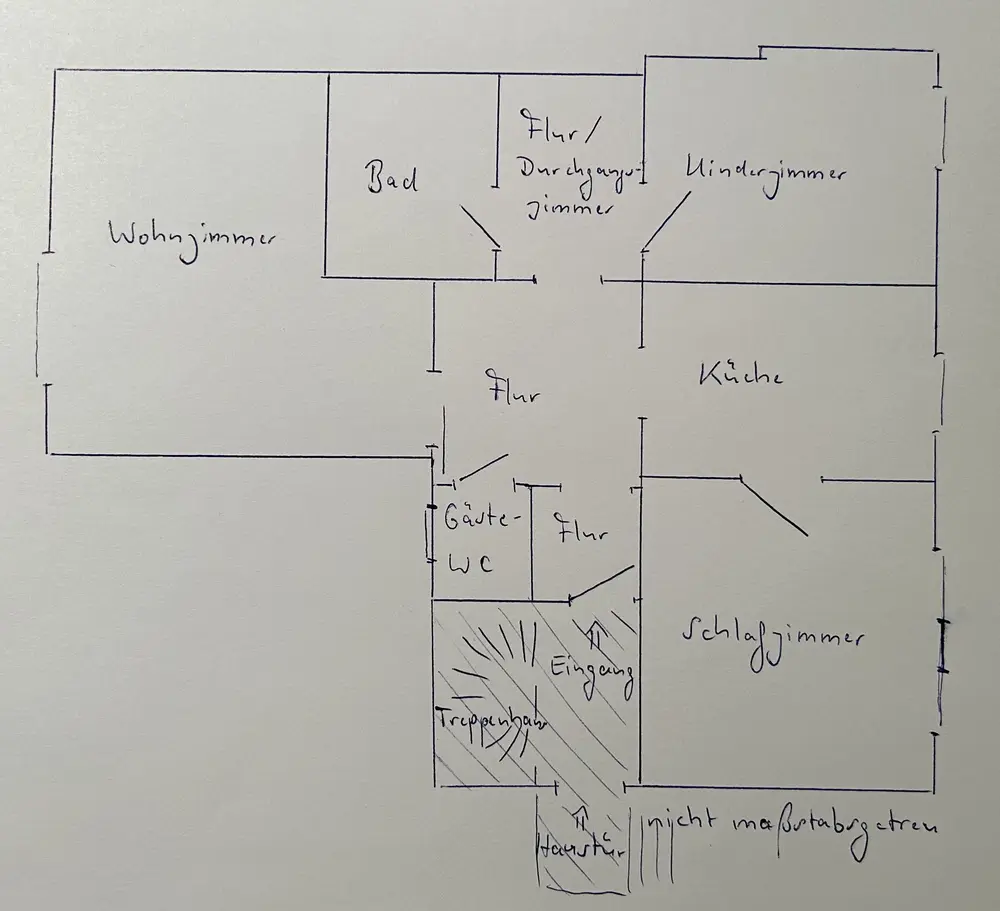 Flur/
Durchgangs-
zimmer
Bad
Kinderzimmer
Wohnzimmer
Küche
Flur
Gäste-
WC
Flur
Schlafzimmer
Eingang
Treppenhaus
nicht maßstabsgetreu
Haustür